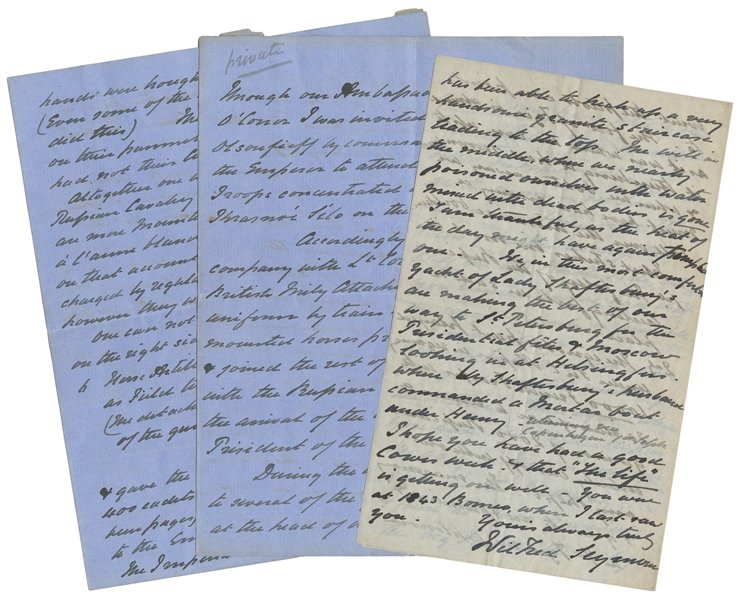 hands were bough
(Even some of the
did this)
on their pummel
had not their
Altogether one
Russian Cavalry
are more mounte
à l'arme blanc
on that account
charged by regul
however they w
one can not
on the right si
to Horse Artill
as Field
(the detach
of the gun
& gave the
400 cadets
been pages)
to the Em
The Imperia
private
Through our Ambassad
O'Conor I was invited
by comman
the Emperor to attend
Troops concentrated
Krasnoé Sélo on the
Accordingly
company with Lt Co
British Mily Attaché
uniform by train
mounted horses pr
& joined the rest of
with the Russian
the arrival of the
President of the
During the
to several of the
at the head of
has been able to pick up a very
handsome granite staircase
leading to the top. The well in
the middle where we nearly
poisoned ourselves with water
mixed with dead bodies is gone
I am thankful, as the heat of
the day have again
one. He in this most comfortable
yacht of Lady Shaftesbury's
are making the best of our
way to St. Petersburg for the
Presidential fêtes & Moscow
looking in at Helsingfors.
where Ly Shaftesbury's husband
commanded a Mortar boat
under Henry
I hope you have had a good
Cowes week. & that "The life"
is getting on well. You were
at 1843 Borneo, when I last saw
you. Yours always truly
Wilfred Seymour